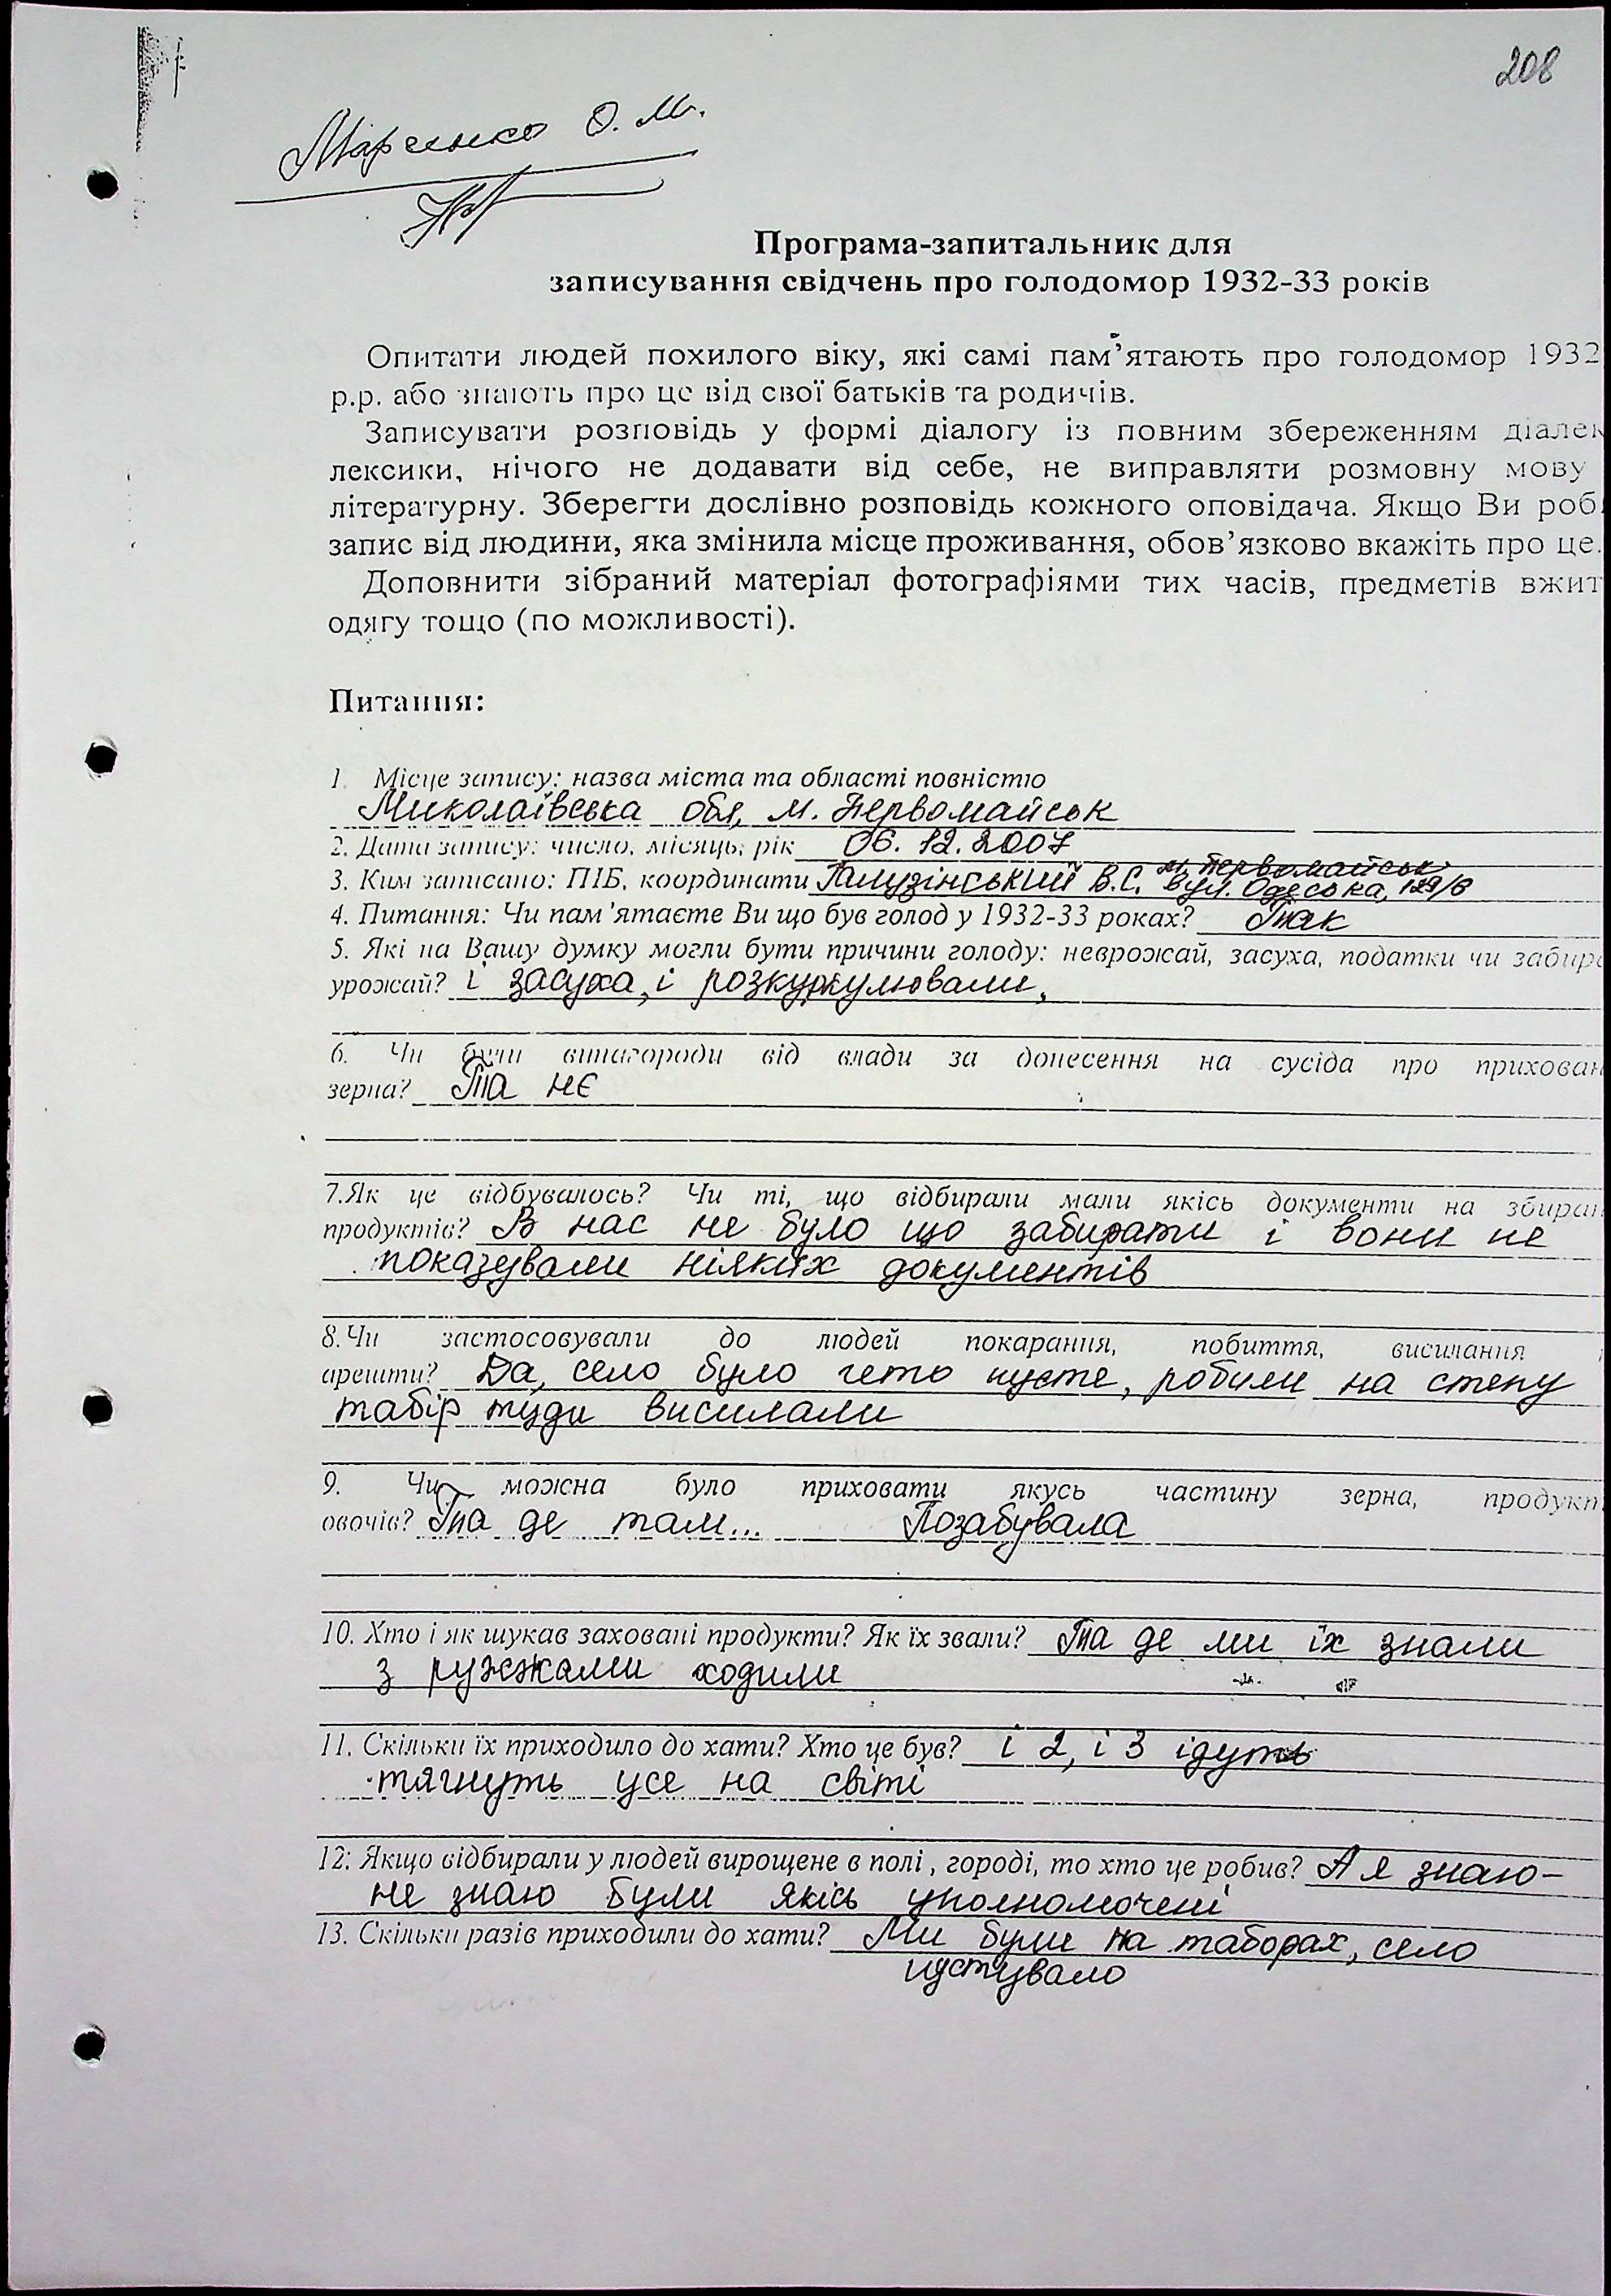 208
Марченко О. М.
Програма-запитальник для
записування свідчень про голодомор 1932-33 років
Опитати людей похилого віку, які самі пам’ятають про голодомор 1932
р.р. або знають про це від свої батьків та родичів.
Записувати розповідь у формі діалогу із повним збереженням діалек
лексики, нічого не додавати від себе, не виправляти розмовну мову
літературну. Зберегти дослівно розповідь кожного оповідача. Якщо Ви роб
запис від людини, яка змінила місце проживання, обов’язково вкажіть про це.
Доповнити зібраний матеріал фотографіями тих часів, предметів вжит
одягу тощо (по можливості).
Питання:
1. Місце запису: назва міста та області повністю
Миколаївська обл, м. Первомайськ
2. Дата запису: число, місяць, рік 06. 12. 2007
м. Первомайськ
3. Ким записано: ПІБ, координати Галузінський В.С. вул. Одеська, 129/8
4. Питання: Чи пам’ятаєте Ви що був голод у 1932-33 роках? Так
5. Які на Вашу думку могли бути причини голоду: неврожай, засуха, податки чи забира
урожай? і засуха, і розкуркулювали,
6. Чи були винагороди від влади за донесення на сусіда про прихован
зерна? Та нє
7.Як це відбувалось? Чи ті, що відбирали мали якісь документи на збиран
продуктів? В нас не було що забирати і вони не
показували ніяких документів
8.Чи застосовували до людей покарання, побиття, висилання
арешти? Да, село було гето пусте, робили на степу
табір туди висилали
9. Чи можна було приховати якусь частину зерна, продукт
овочів? Та де там... Позабувала
10. Хто і як шукав заховані продукти? Як їх звали? Та де ми їх знали
з ружжами ходили
11. Скільки їх приходило до хати? Хто це був? і 2, і 3 ідуть
тягнуть усе на світі
12. Якщо відбирали у людей вирощене в полі, городі, то хто це робив? А я знаю-
не знаю були якісь уполномочені
13. Скільки разів приходили до хати? Ми були на таборах, село
пустувало